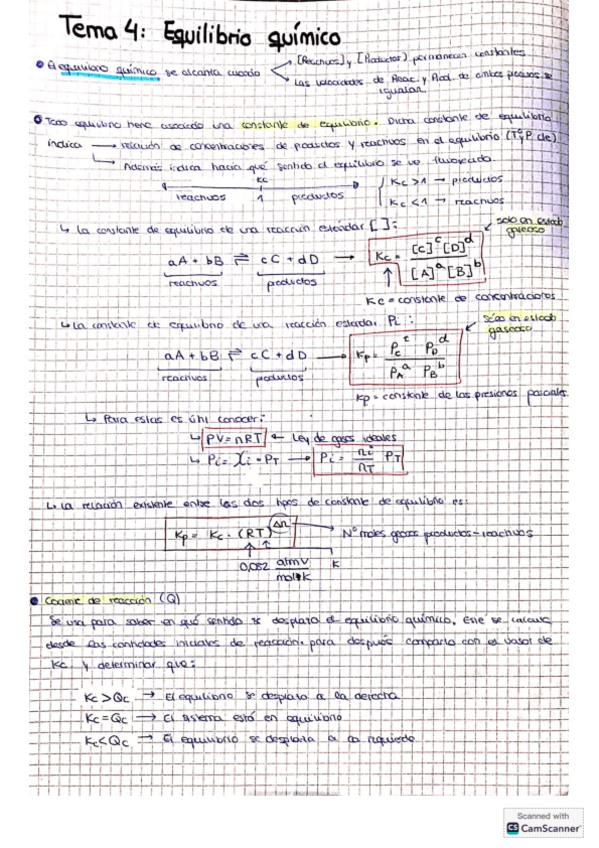 Tema 4: Equilibrio químico
El equilibrio químico se alcanza cuando
[Reactivos] y [Productos] permanecen constantes
Las velocidades de Reac. y Prod. de ambos procesos se igualan
Todo equilibrio tiene asociado una constante de equilibrio. Dicha constante de equilibrio
indica → relación de concentraciones de productos y reactivos en el equilibrio (Tª y P de)
↳ Además indica hacia qué sentido el equilibrio se ve favorecido.
Kc
reactivos 1 productos
Kc > 1 → productos
Kc < 1 → reactivos
↳ La constante de equilibrio de una reacción estándar [ ]:
solo en estado gaseoso
aA + bB ⇌ cC + dD → Kc = [C]^c [D]^d / [A]^a [B]^b
reactivos productos
Kc = constante de concentraciones
↳ La constante de equilibrio de una reacción estándar Pi :
Sólo en estado gaseoso
aA + bB ⇌ cC + dD → Kp = P_C^c P_D^d / P_A^a P_B^b
reactivos productos
Kp = constante de las presiones parciales
↳ Para estas es útil conocer:
↳ PV = nRT ← Ley de gases ideales
↳ Pi = Xi · PT → Pi = ni/nT PT
↳ La relación existente entre los dos tipos de constante de equilibrio es:
Kp = Kc · (RT)^Δn → Nº moles gases productos - reactivos
0,082 atm V / mol·K K
Cociente de reacción (Q)
Se usa para saber en qué sentido se desplaza el equilibrio químico. Este se calcula
desde las cantidades iniciales de reacción, para después compararlo con el valor de
Kc y determinar que:
Kc > Qc → El equilibrio se desplaza a la derecha
Kc = Qc → El sistema está en equilibrio
Kc < Qc → El equilibrio se desplaza a la izquierda
Scanned with
CS CamScanner